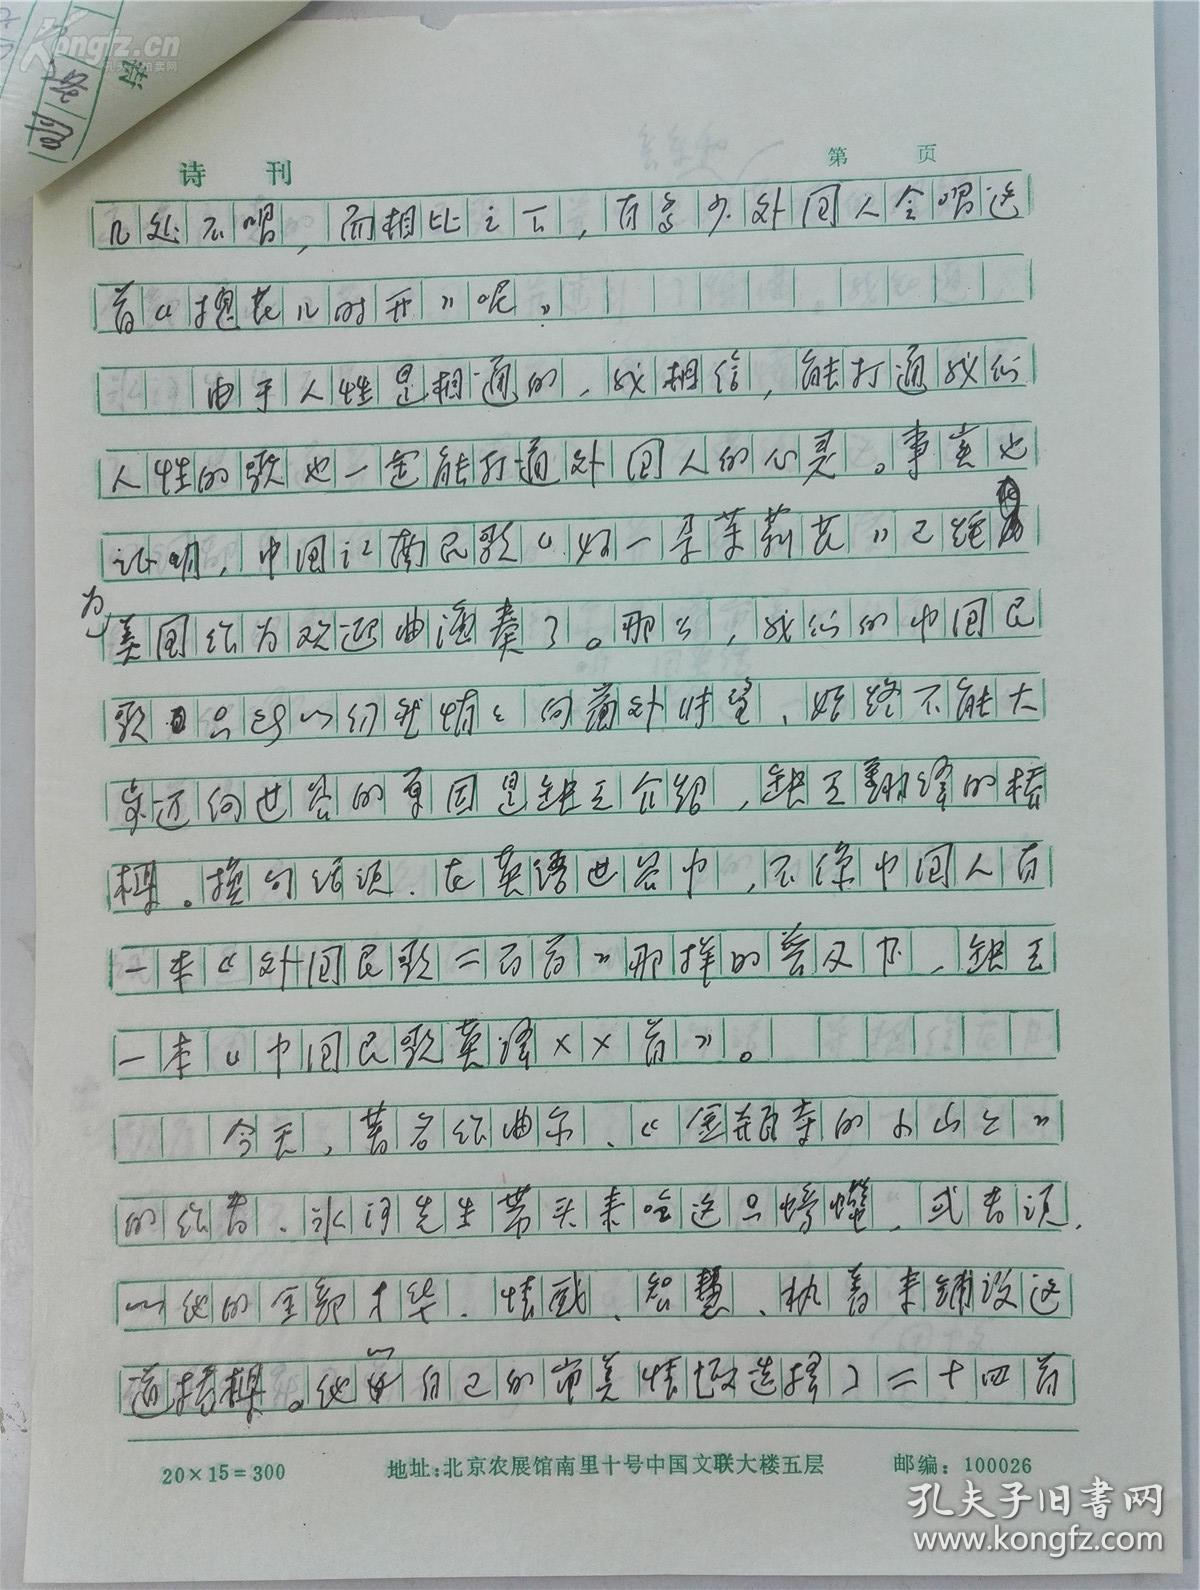 Kongfz.cn
诗 刊
第 页
几处不唱，而相比之下，有多少外国人会唱这
首《槐花几时开》呢。
由于人性是相通的，我相信，能打通我们
人性的歌也一定能打通外国人的心灵。事实也
证明，中国江南民歌《好一朵茉莉花》已经
为
美国作为欢迎曲演奏了。那么，我们的中国民
歌只能以 向 外 望，始终不能大
步迈向世界的原因是缺乏介绍，缺乏翻译的桥
梁。换句话说，在英语世界中，不像中国人有
一本《外国民歌二百首》那样的普及书，缺乏
一本《中国民歌英译××首》。
今天，著名作曲家、《金瓶 的小山上》
的作者、冰河先生带头来吃这只螃蟹，或者说，
以他的全部才华、情感、智慧、执着来铺设这
道桥梁。他以自己的审美情 选择了二十四首
20×15=300
地址：北京农展馆南里十号中国文联大楼五层
邮编：100026
孔夫子旧书网
www.kongfz.com